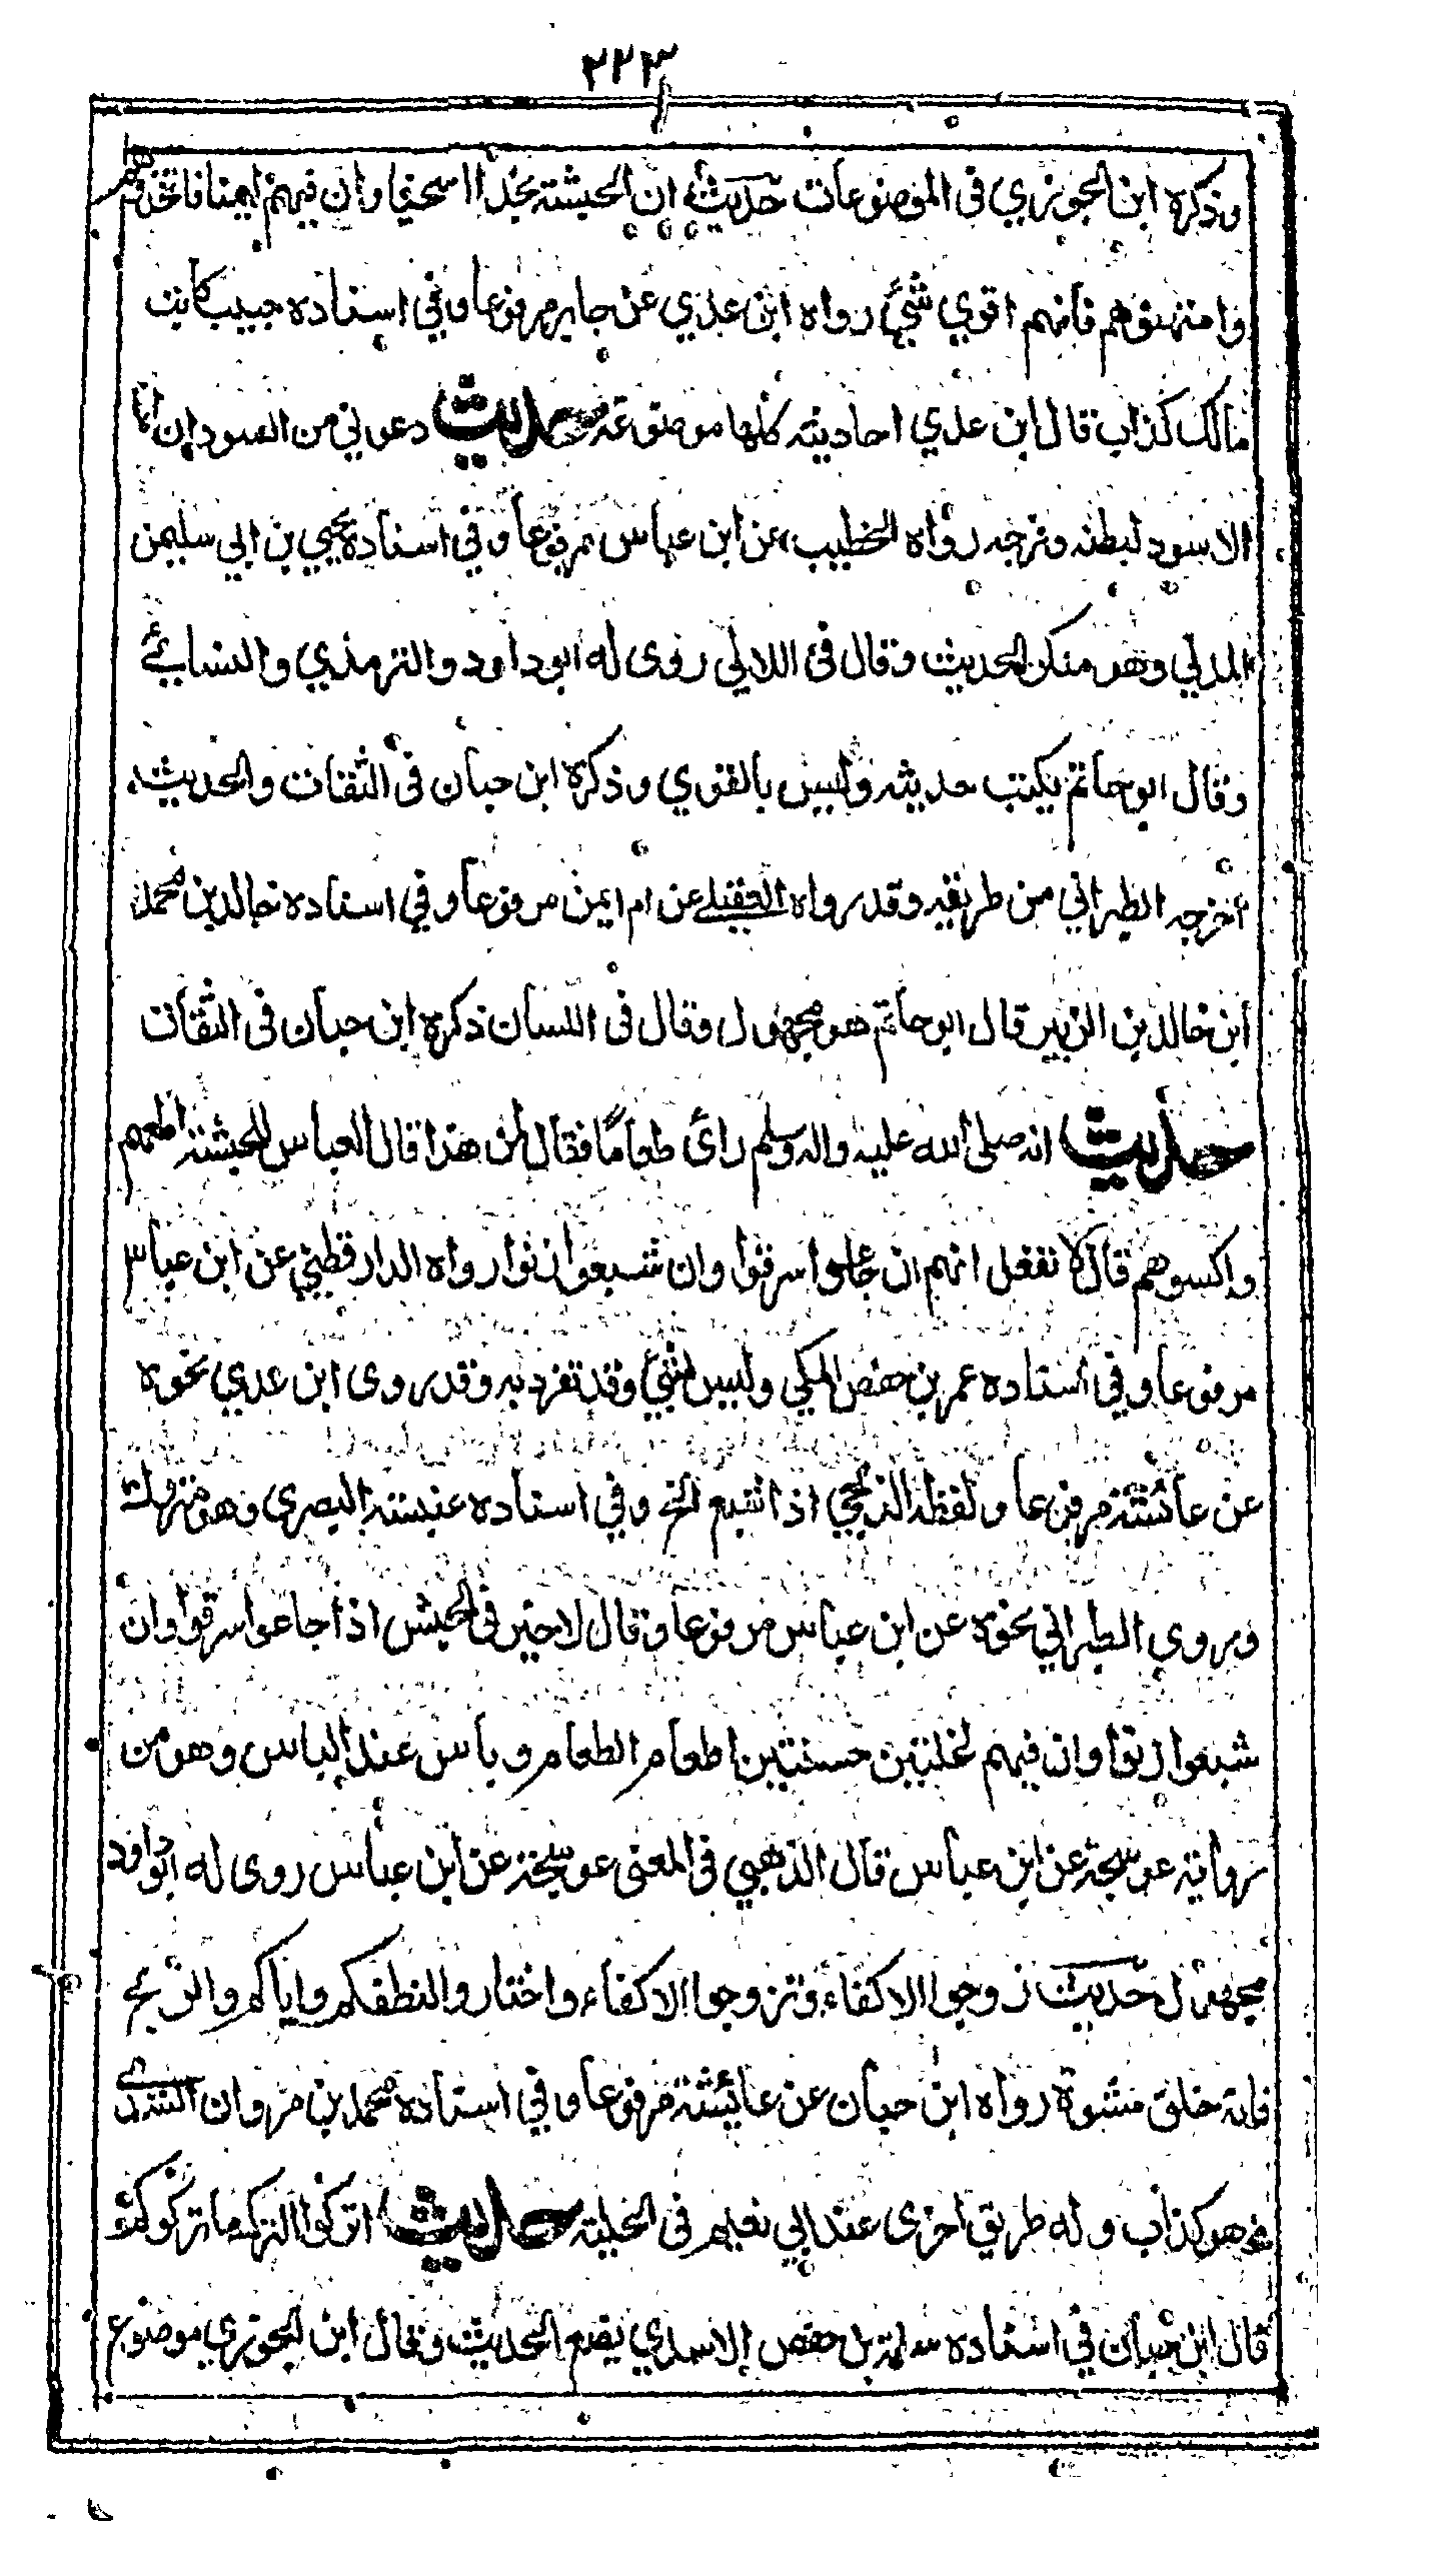 ٢٢٣
وذكره ابن الجوزي في الموضوعات حديث ان الحبشة نجدا اسخيا وان فيهم ايمنا فاتخذوهم
وامتهنوهم فانهم اقوى شيء رواه ابن عدي عن جابر مرفوعا وفي اسناده حبيب كاتب
مالك كذاب قال ابن عدي احاديثه كلها موضوعة حديث دعوني من السودان انما
الاسود لبطنه وفرجه رواه الخطيب عن ابن عباس مرفوعا وفي اسناده يحيى بن ابي سليمن
المدني وهو منكر الحديث وقال في اللالي روى له ابو داود والترمذي والنسائي
وقال ابو حاتم يكتب حديثه وليس بالقوي وذكره ابن حبان في الثقات والحديث
اخرجه الطبراني من طريقه وقد رواه العقيلي عن ام ايمن مرفوعا وفي اسناده خالد بن محمد
ابن خالد بن الزبير قال ابو حاتم هو مجهول وقال في اللسان ذكره ابن حبان في الثقات
حديث انه صلى الله عليه واله وسلم رائ طعاما فقال لمن هذا قال العباس للحبشة اطعمهم
واكسوهم قال لا تفعل انهم ان جاعوا سرقوا وان شبعوا زنوا رواه الدارقطني عن ابن عباس
مرفوعا وفي اسناده عمر بن حفص المكي وليس بشيء وقد تفرد به وقد روى ابن عدي نحوه
عن عائشة مرفوعا ولفظه الزنجي اذا شبع الخ وفي اسناده عنبسة البصري وهو متروك
وروى الطبراني نحوه عن ابن عباس مرفوعا وقال لا خير في الحبش اذا جاعوا سرقوا وان
شبعوا زنوا وان فيهم لخلتين حسنتين اطعام الطعام وباس عند الباس وهو من
رواية عوسجة عن ابن عباس قال الذهبي في المغنى عوسجة عن ابن عباس روى له ابو داود
مجهول حديث زوجوا الاكفاء وتزوجوا الاكفاء واختاروا لنطفكم واياكم والزنج
فانه خلق مشوه رواه ابن حبان عن عائشة مرفوعا وفي اسناده محمد بن مروان السدي
وهو كذاب وله طريق اخرى عند ابي نعيم في الحلية حديث اتركوا الترك ما تركوكم
قال ابن حبان في اسناده سلمة بن حفص الاسدي يضع الحديث وقال ابن الجوزي موضوع